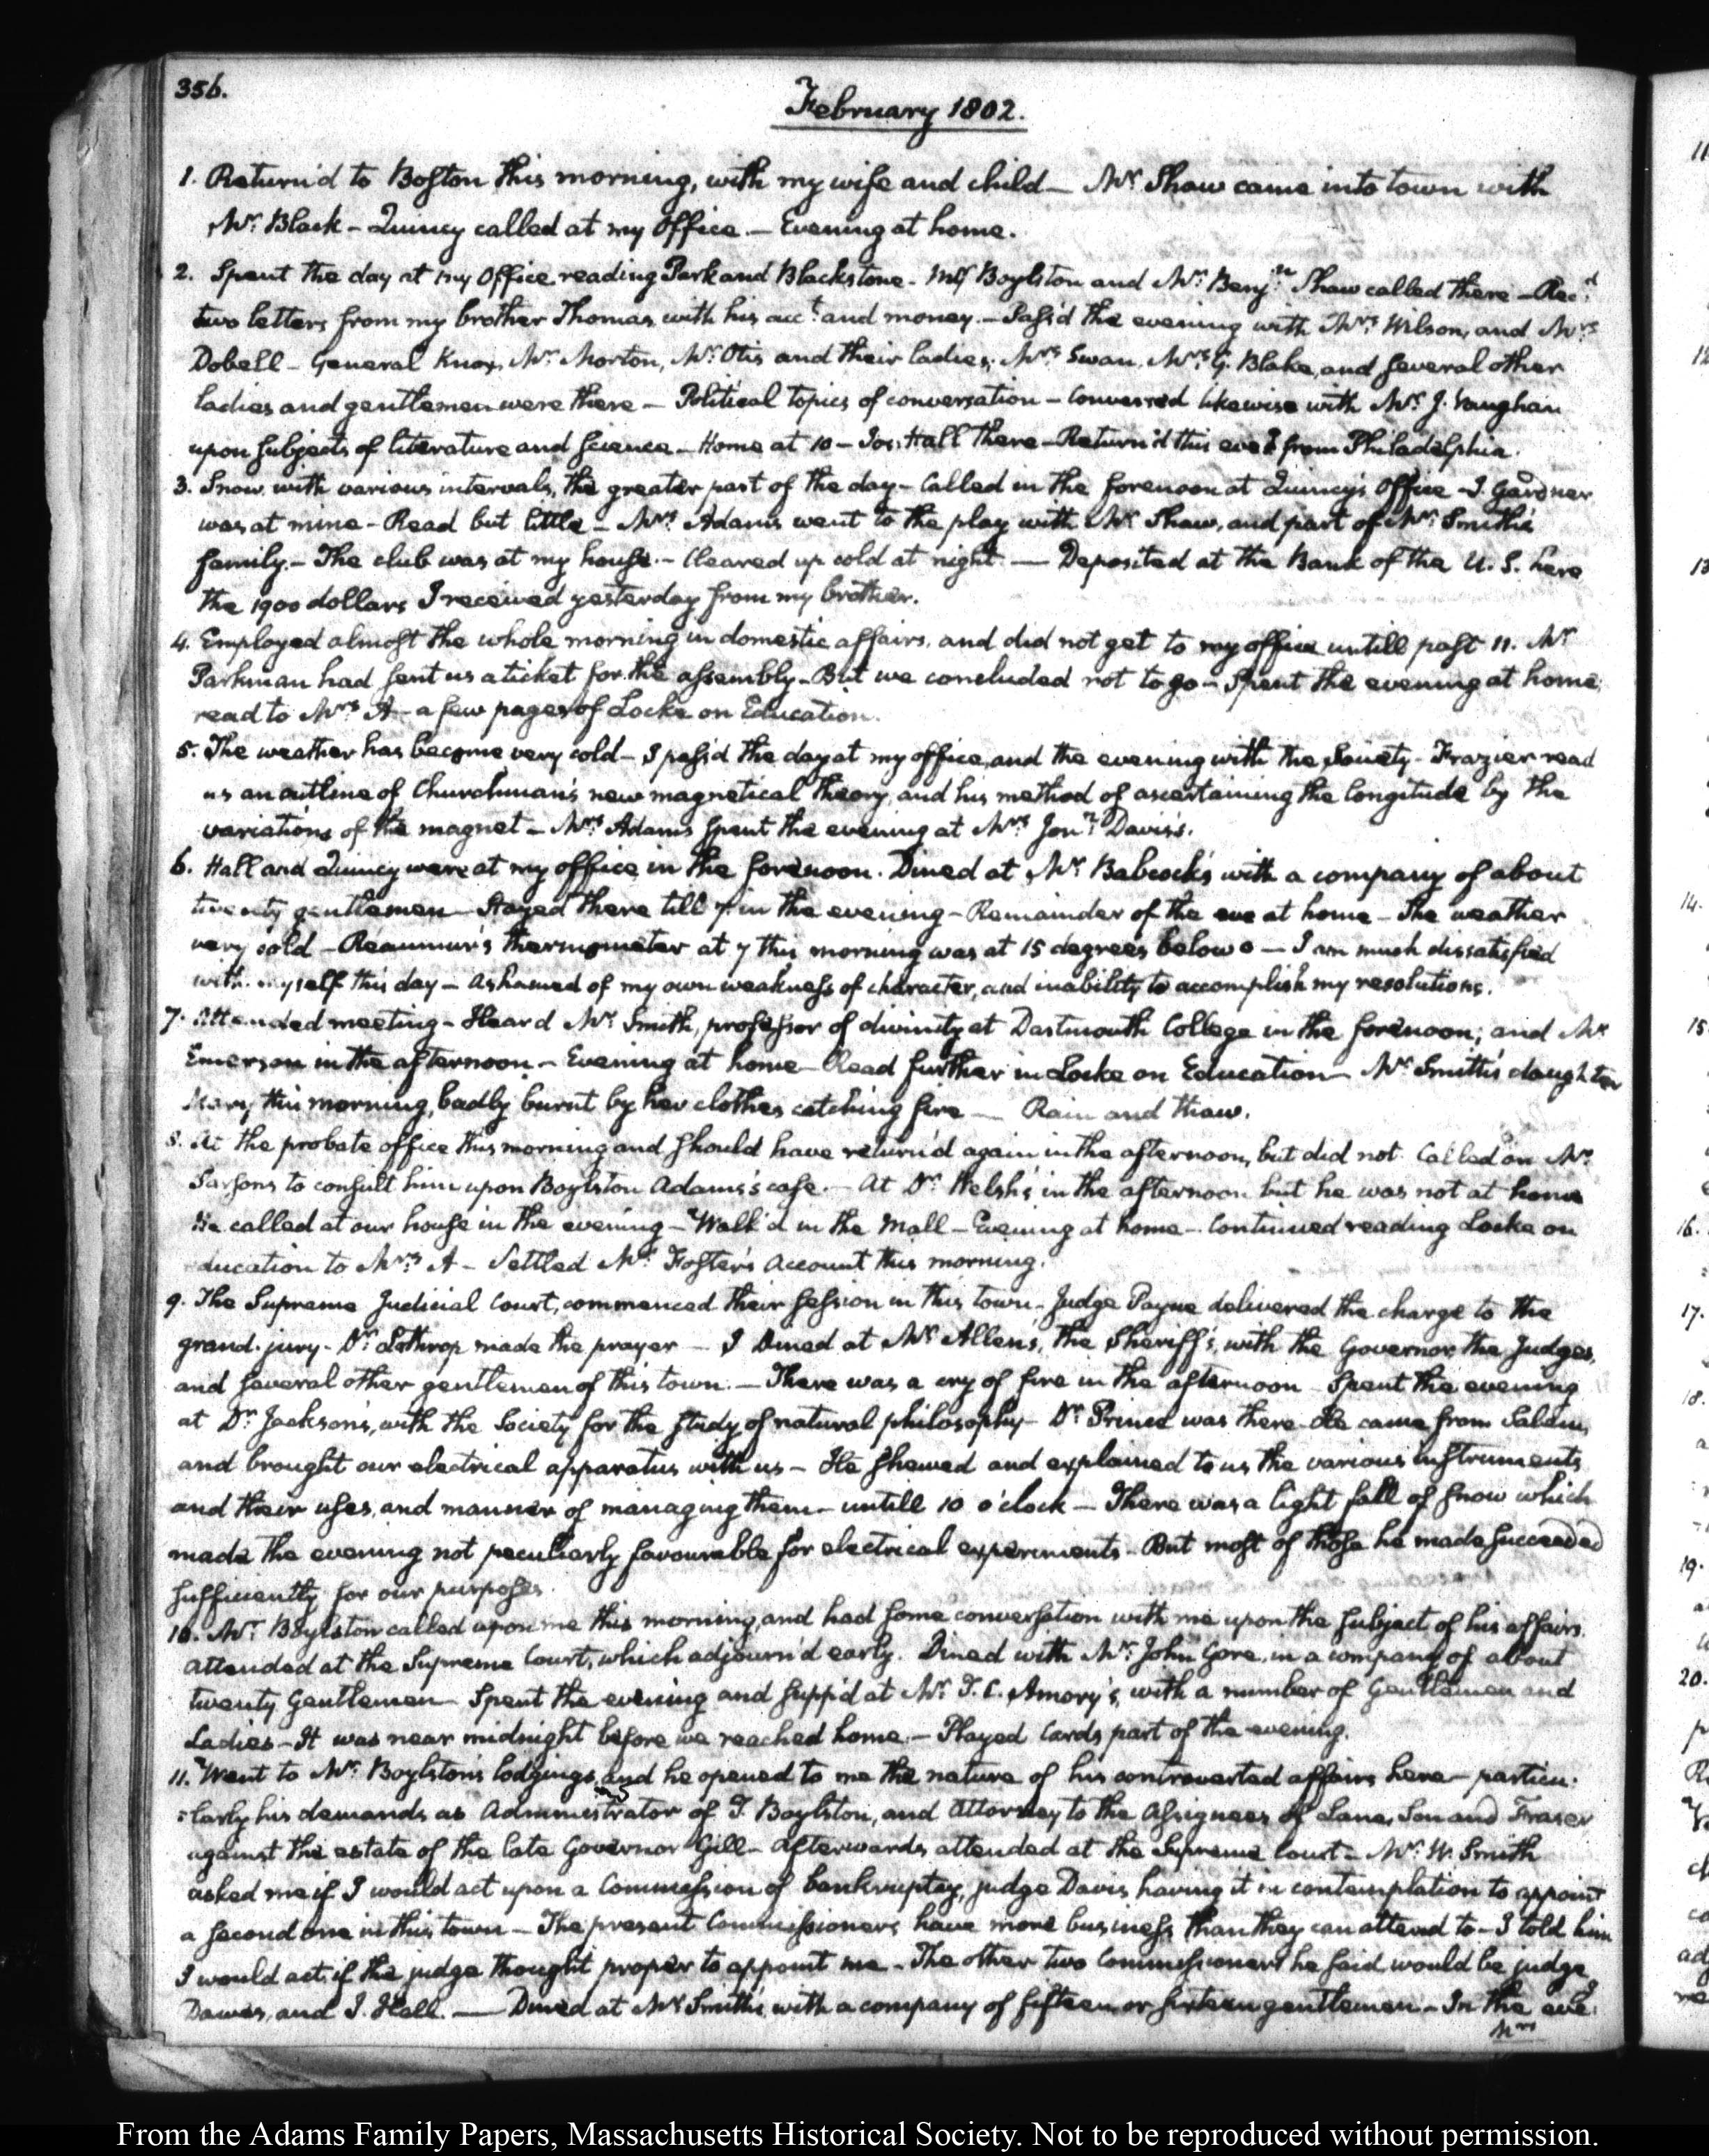 356.
February 1802.
1. Return'd to Boston this morning, with my wife and child — Mr. Shaw came into town with
Mr. Black — Quincy called at my Office. — Evening at home.
2. Spent the day at my Office reading Park and Blackstone — Mr Boylston and Mr. Benjn. Shaw called there — Recd.
two letters from my brother Thomas, with his acct. and money. — Pass'd the evening with Mrs. Wilson, and Mrs.
Dobell — General Knox, Mr. Morton, Mr. Otis and their ladies; Mrs. Swan, Mrs. G. Blake, and several other
ladies and gentlemen were there — Political topics of conversation — Conversed likewise with Mr. J. Vaughan
upon subjects of literature and science — Home at 10 — Jos: Hall there — Return'd this eveg. from Philadelphia.
3. Snow with various intervals, the greater part of the day — Called in the forenoon at Quincy's Office — J. Gardner
was at mine — Read but little — Mrs. Adams went to the play with Mr. Shaw, and part of Mr. Smith's
family. — The club was at my house. — Cleared up cold at night — Deposited at the Bank of the U.S. here
the 1900 dollars I received yesterday from my brother.
4. Employed almost the whole morning in domestic affairs, and did not get to my office untill past 11. Mr.
Parkman had sent us a ticket for the assembly — But we concluded not to go — Spent the evening at home;
read to Mrs. A — a few pages of Locke on Education.
5. The weather has become very cold — I pass'd the day at my office, and the evening with the Society — Frazier read
us an outline of Churchman's new magnetical theory, and his method of ascertaining the longitude by the
variations of the magnet — Mrs. Adams spent the evening at Mrs. Jonn. Davis's.
6. Hall and Quincy were at my office in the forenoon. Dined at Mr. Babcock's with a company of about
twenty gentlemen — Stayed there till 7 in the evening — Remainder of the eve at home — The weather
very cold — Reaumur's thermometer at 7 this morning was at 15 degrees below 0 — I am much dissatisfied
with myself this day — ashamed of my own weakness of character, and inability to accomplish my resolutions.
7. Attended meeting — Heard Mr. Smith, professor of divinity at Dartmouth College in the forenoon; and Mr.
Emerson in the afternoon — Evening at home — Read further in Locke on Education — Mr. Smith's daughter
Mary this morning, badly burnt by her clothes catching fire — Rain and thaw.
8. At the probate office this morning and should have return'd again in the afternoon, but did not. Called on Mr.
Parsons to consult him upon Boylston Adams's case. — At Dr. Welsh's in the afternoon but he was not at home
He called at our house in the evening — Walk'd in the Mall — Evening at home — Continued reading Locke on
education to Mrs. A — Settled Mr. Foster's Account this morning.
9. The Supreme Judicial Court, commenced their session in this town — Judge Payne delivered the charge to the
grand-jury — Dr. Lothrop made the prayer — I Dined at Mr. Allen's, the Sheriff's, with the Governor, the Judges,
and several other gentlemen of this town. — There was a cry of fire in the afternoon — Spent the evening
at Dr. Jackson's, with the Society for the study of natural philosophy — Dr. Prince was there — He came from Salem,
and brought our electrical apparatus with us — He shewed and explained to us the various instruments
and their uses, and manner of managing them — untill 10 o'clock — There was a light fall of snow which
made the evening not peculiarly favourable for electrical experiments — But most of those he made succeeded
sufficiently for our purposes.
10. Mr. Boylston called upon me this morning, and had some conversation with me upon the subject of his affairs.
Attended at the Supreme Court, which adjourn'd early. Dined with Mr. John Gore, in a company of about
twenty Gentlemen — Spent the evening and supp'd at Mr. T. C. Amory's, with a number of Gentlemen and
Ladies — It was near midnight before we reached home. — Played Cards part of the evening.
11. Went to Mr. Boylston's lodgings, and he opened to me the nature of his controverted affairs here — particu-
=larly his demands as Administrator of T. Boylston, and Attorney to the Assignees of Lane, Son and Fraser
against the estate of the late Governor Gill — Afterwards attended at the Supreme Court — Mr. W. Smith
asked me if I would act upon a Commission of bankruptcy, judge Davis having it in contemplation to appoint
a second one in this town — The present Commissioners have more business than they can attend to — I told him
I would act if the judge thought proper to appoint me — The other two Commissioners he said would be judge
Dawes, and J. Hall. — Dined at Mr Smith's with a company of fifteen or sixteen gentlemen — In the eveg.
Mrs
11
12
13
14.
15
16.
17.
18.
19.
20.
From the Adams Family Papers, Massachusetts Historical Society. Not to be reproduced without permission.